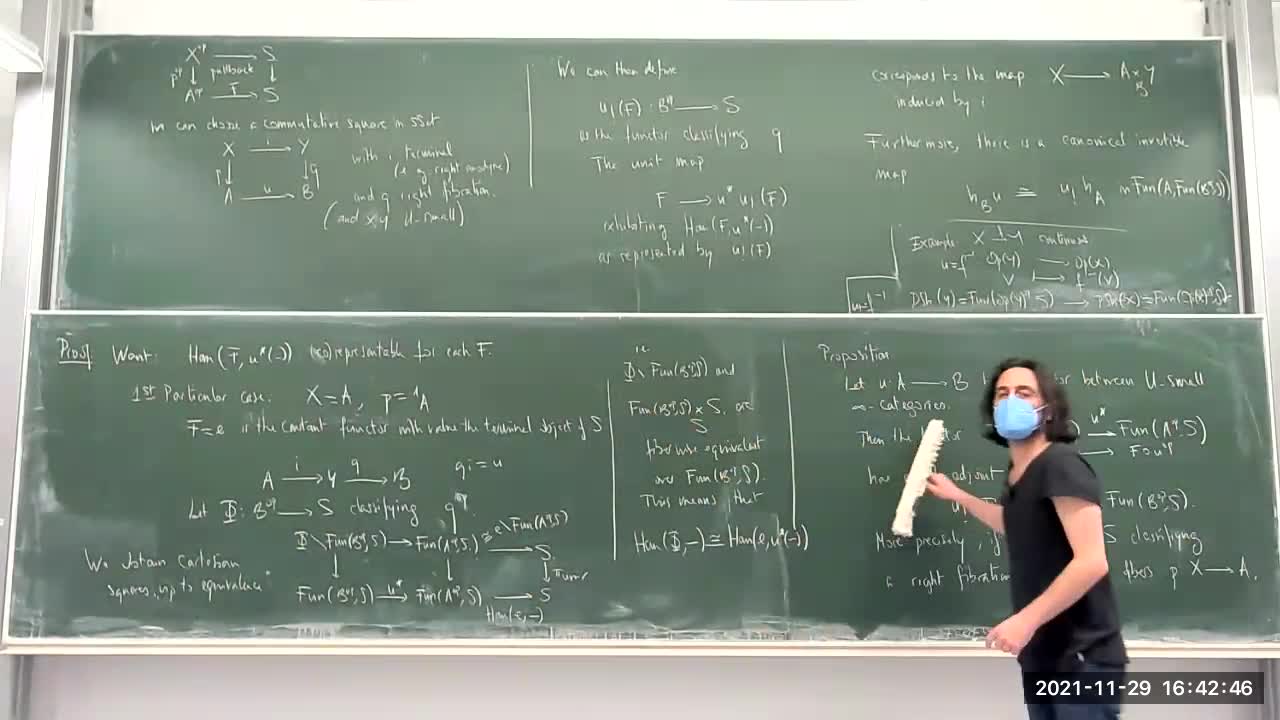 X^op → S
p^op ↓ pullback ↓
A^op → S
F
we can choose a commutative square in sSet
X → Y
i
p ↓ ↓ q
A → B
u
with i terminal
(e.g. right anodyne)
and q right fibration.
(and X, Y U-small)
We can then define
u!(F) : B^op → S
as the functor classifying q
The unit map
F → u* u!(F)
exhibiting Hom(F, u*(-))
as represented by u!(F)
corresponds to the map X → A ×_B Y
induced by i
Furthermore, there is a canonical invertible
map
h_B u ≅ u! h_A in Fun(A, Fun(B^op, S))
Example X → Y continuous
u = f^-1 Op(Y) → Op(X)
V ↦ f^-1(V)
u = f^-1
PSh(Y) = Fun(Op(Y)^op, S) → PSh(X) = Fun(Op(X)^op, S)
Proof Want: Hom(F, u*(-)) (co)representable for each F.
1st Particular case: X = A, p = 1_A
F = e is the constant functor with value the terminal object of S
A → Y → B qi = u
i q
Let Φ : B^op → S classifying q^op
We obtain cartesian
squares "up to equivalence"
Φ\Fun(B^op, S) → Fun(A^op, S.) ≅ e\Fun(A^op, S) → S.
Fun(B^op, S) → Fun(A^op, S) → S
u* Hom(e, -)
↓ p univ
i.e.
Φ\Fun(B^op, S) and
Fun(B^op, S) ×_S S. are
fiberwise equivalent
over Fun(B^op, S).
This means that
Hom(Φ, -) ≅ Hom(e, u*(-))
Proposition
Let u : A → B between U-small
∞-categories.
Then the u* → Fun(A^op, S)
→ F∘u^op
has adjoint
u! Fun(B^op, S).
More precisely, if S classifying
a right fibration p X → A.
2021-11-29 16:42:46